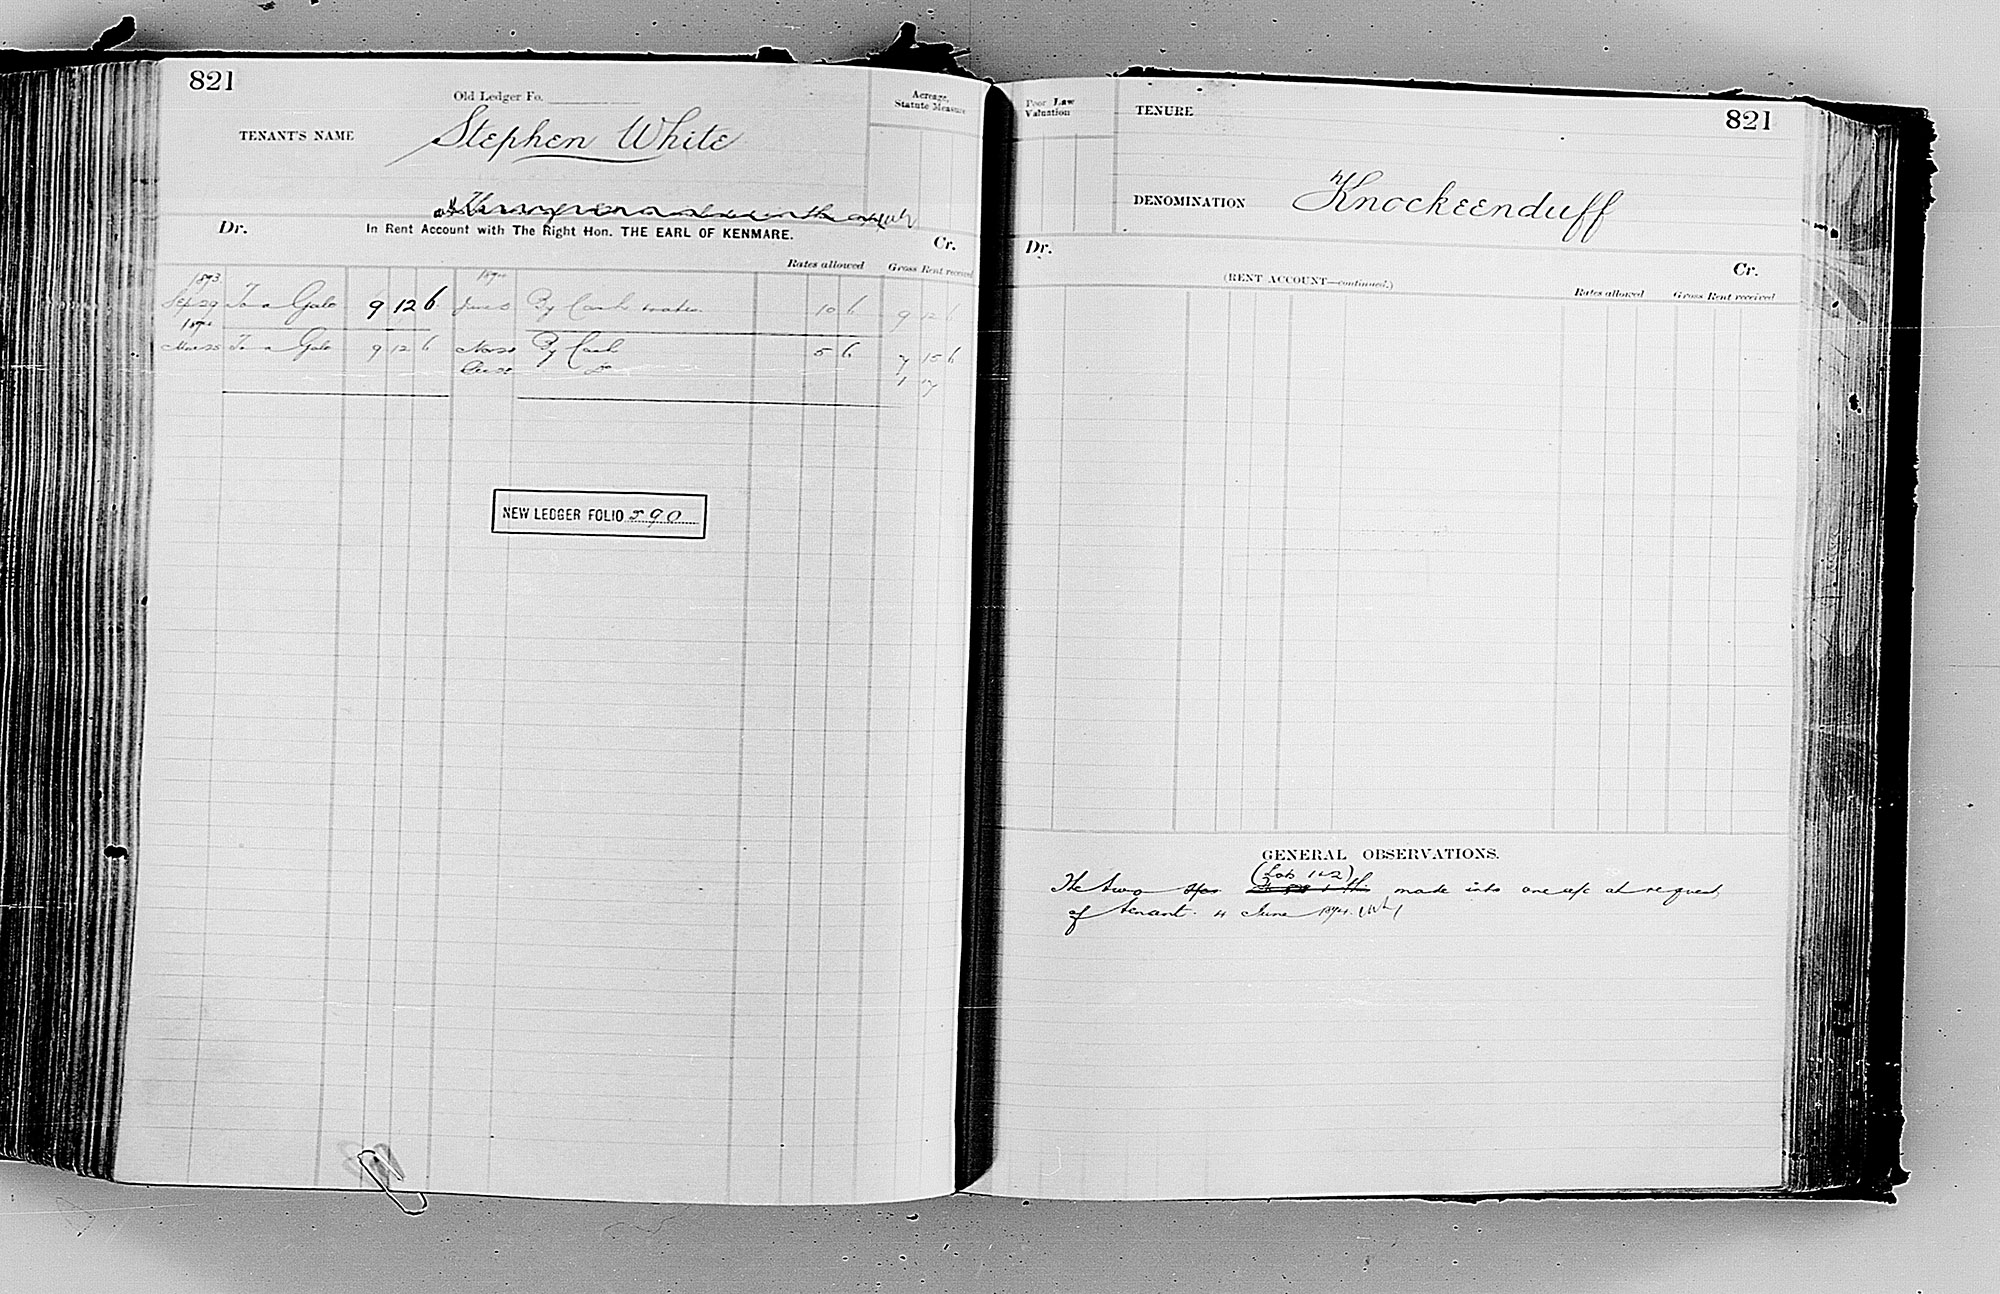 821
Old Ledger Fo.
Acreage,
Statute Measure
TENANT'S NAME Stephen White
Dr. In Rent Account with The Right Hon. THE EARL OF KENMARE. Cr.
Rates allowed Gross Rent received
1893 1894
Sep 29 To a Gale 9 12 6 June By Cash 10 6 9 12 6
1894
Mar 25 To a Gale 9 12 6 Nov By Cash 5 6 7 15 6
Dec Do 1 17
NEW LEDGER FOLIO 590
Poor Law
Valuation
TENURE
821
DENOMINATION Knockeenduff
Dr. Cr.
(RENT ACCOUNT—continued.)
Rates allowed Gross Rent received
GENERAL OBSERVATIONS.
(Lots 1 & 2)
The two made into one a/c at request
of tenant. 4 June 1894.